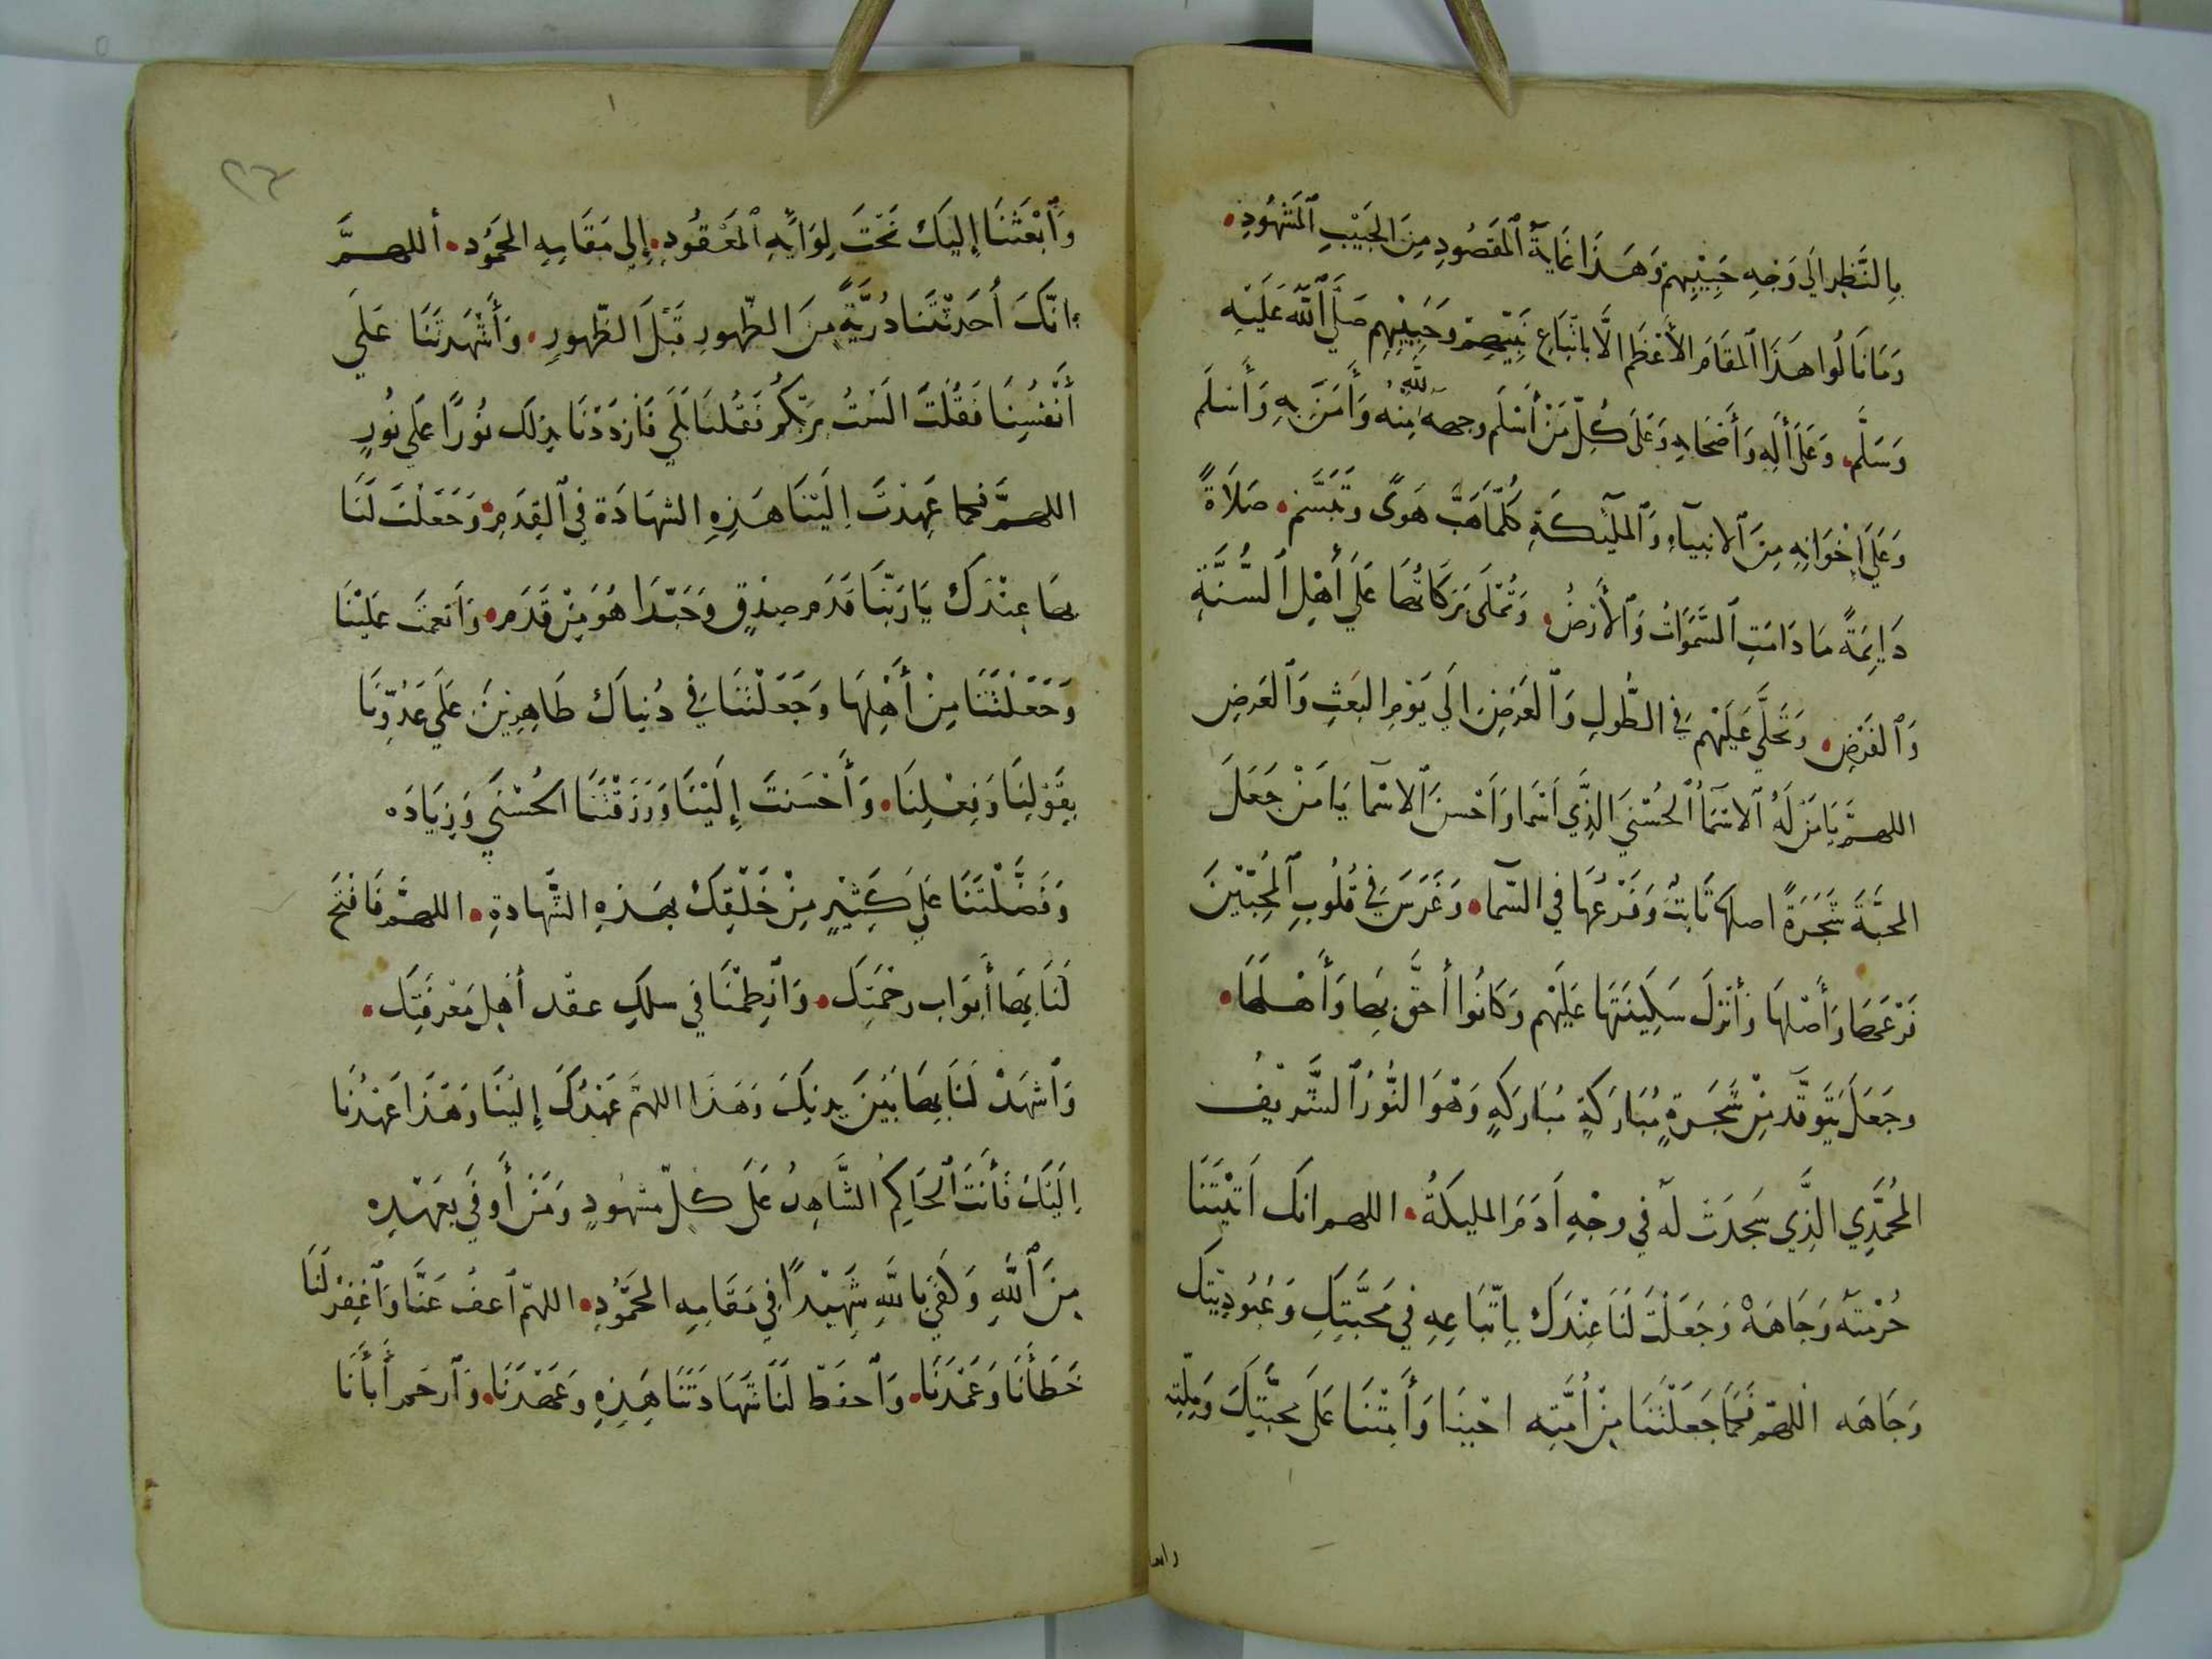 بِالنَّظَرِ الَي وَجْهِ حَبِيْبِهِمْ وَهَذَا غَايَةُ ٱلْمَقْصُودِ مِنَ الْحَبِيْبِ ٱلْمَشْهُودِ.
وَمَا نَالُوا هَذَا ٱلْمَقَامَ الأَعْظَم الَّا بِاتِّبَاعِ نَبِيِّهِمْ وَحَبِيْبِهِم صَلَّي ٱللّٰهُ عَلَيْهِ
وَسَلَّم. وَعَلَى أَلِهِ وَأَصْحَابِهِ وَعَلَى كُلِّ مَنْ أَسْلَم وجهه لله مِنْهُ وَأَمَنَ بِهِ وَأَسْلَم
وَعَلَي إِخْوَانِهِ مِنَ ٱلانبِيَآءِ وَٱلْمَلٓئِكَةِ كُلَّمَا هَبَّ هَوًى وَتَبَسَّم. صَلَاةً
دَايِمَةً مَا دَامَتِ ٱلسَّمَوَاتُ وَٱلْأَرْضُ. وَتُمْلَى بَرَكَاتُهَا عَلَي أَهْلِ ٱلسُّنَّةِ
وَٱلْفَرْضِ. وَتَحَلَّي عَلَيْهِم فِي الطُّولِ وَٱلْعَرَضِ الَي يَوْمِ البَعَثِ وَٱلْعَرضِ
اللهمَّ يَا مَنْ لَهُ ٱلاسْمَآُ ٱلْحُسْنَي الَّذِي اسْمَا وَاَحْسَنَ ٱلاسْمَا يَامَنْ جَعَلَ
المحَبَّةَ شَجَرَةً اصلها ثَابِتٌ وَفَرْعُهَا فِي السَّمَآ. وَغَرَسَ فِي قُلُوبِ ٱلْمُحِبِّيْنَ
فَرْعَهَا وَأَصْلَهَا وَأَنْزَلَ سَكِينَتَهَا عَلَيْهِم وَكَانُوا أَحَقَّ بِهَا وَأَهْلَهَا.
وجَعَلَ يَتَوَقَّد مِنْ شَجَرَةٍ مُبَارَكَةٍ مُبَارَكَهٍ وَهْوَ النُّوْرُ ٱلشَّرِيْفُ
المُحَمَّدِي الَّذِي سَجَدَتْ لَهُ فِي وجْهِ اَدَمَ المليكَةُ. اللهم انك اَتَيْتَنَا
حُرْمَتَهُ وَجَاهَهْ وَجَعَلْتَ لَنَا عِنْدَكَ بِاتِّبَاعِهِ فِي مَحَبَّتِكِ وَعُبُودِيَّتِكَ
وَجَاهَه اللهم فَكَمَا جَعَلْتَنَا مِنْ اُمَّتِه احْيِنَا وَأَمِتْنَا عَلَى مَحَبَّتِكَ وَمِلَّتِه
وابعثنا
وَٱبْعَثْنَا إِلَيْكَ تَحْتَ لِوَايِهِ ٱلْمَعْقُودِ. إِلي مَقَامِهِ المحَمُوْد. أللهمَّ
إِنَّكَ أَحَدَثْتَنَا دُرِّيَّةً مِنَ الظُّهورِ قَبْلَ الظُّهورِ. وَأَشْهَدتَنَا عَلَي
أَنْفُسِنَا فَقُلْتَ الَسْتُ بِرَبِّكُمْ فَقُلْنَا بَلَي فَازْدَدْنَا بِذلكَ نُورًا عَلَي نُورٍ
اللهمَّ فكما عَهِدْتَ الَيْنَا هَذِهِ الشهَادَة فِي ٱلْقِدَمِ. وَجَعَلْتَ لَنَا
بِهَا عِنْدَكَ يَا رَبَّنَا قَدَم صِدْقٍ وَحَبَّذَا هُوَ مِنْ قَدَم. وَاَنعمتَ عَلَيْنَا
وَجَعَلْتَنَا مِنْ أَهْلِهَا وَجَعَلْتَنَا فِي دُنياك ظَاهِرِيْنَ عَلَي عَدُوِّنَا
بِقَوْلِنَا وَفِعْلِنَا. وَأَحْسَنتَ إِلَيْنَا وَرَزَقْتَنَا الحُسْنَي وَزِيَادَه
وَفَضَّلْتَنَا عَلَي كَثِيْرٍ مِنْ خَلْقِكَ بهَذِهِ الشَّهَادةِ. اللهمَّ فَافْتَح
لَنَا بِهَا أَبْوَاب رحْمَتِك. وَٱنْظِمْنَا فِي سلكِ عقْد أهْلِ مَعْرفَتِك.
وَٱشْهَدْ لَنَا بِهَا بَيْنَ يديْكَ وَهَذَا اللهُمَّ عَهْدُكَ إِلَيْنَا وَهَذَا عَهْدُنَا
اِلَيْكَ فَأَنْتَ ٱلْحَاكِمُ الشَّاهِدُ عَلَى كلِّ مشْهُودٍ وَمَنْ أَوفَي بِعَهْدِهِ
مِنَ ٱللَّهِ وَكَفَي بِاللَّهِ شَهِيْدًا فِي مَقَامِهِ المحَمُوْدِ. اللهمّ ٱعفُ عَنَّا وَٱغْفِرْ لَنَا
خَطَأَنَا وَعَمْدَنَا. وَٱحفَظ لَنَا شَهَادَتَنَا هَذِهِ وَعَهْدَنَا. وَٱرحَم أَبَأَنَا